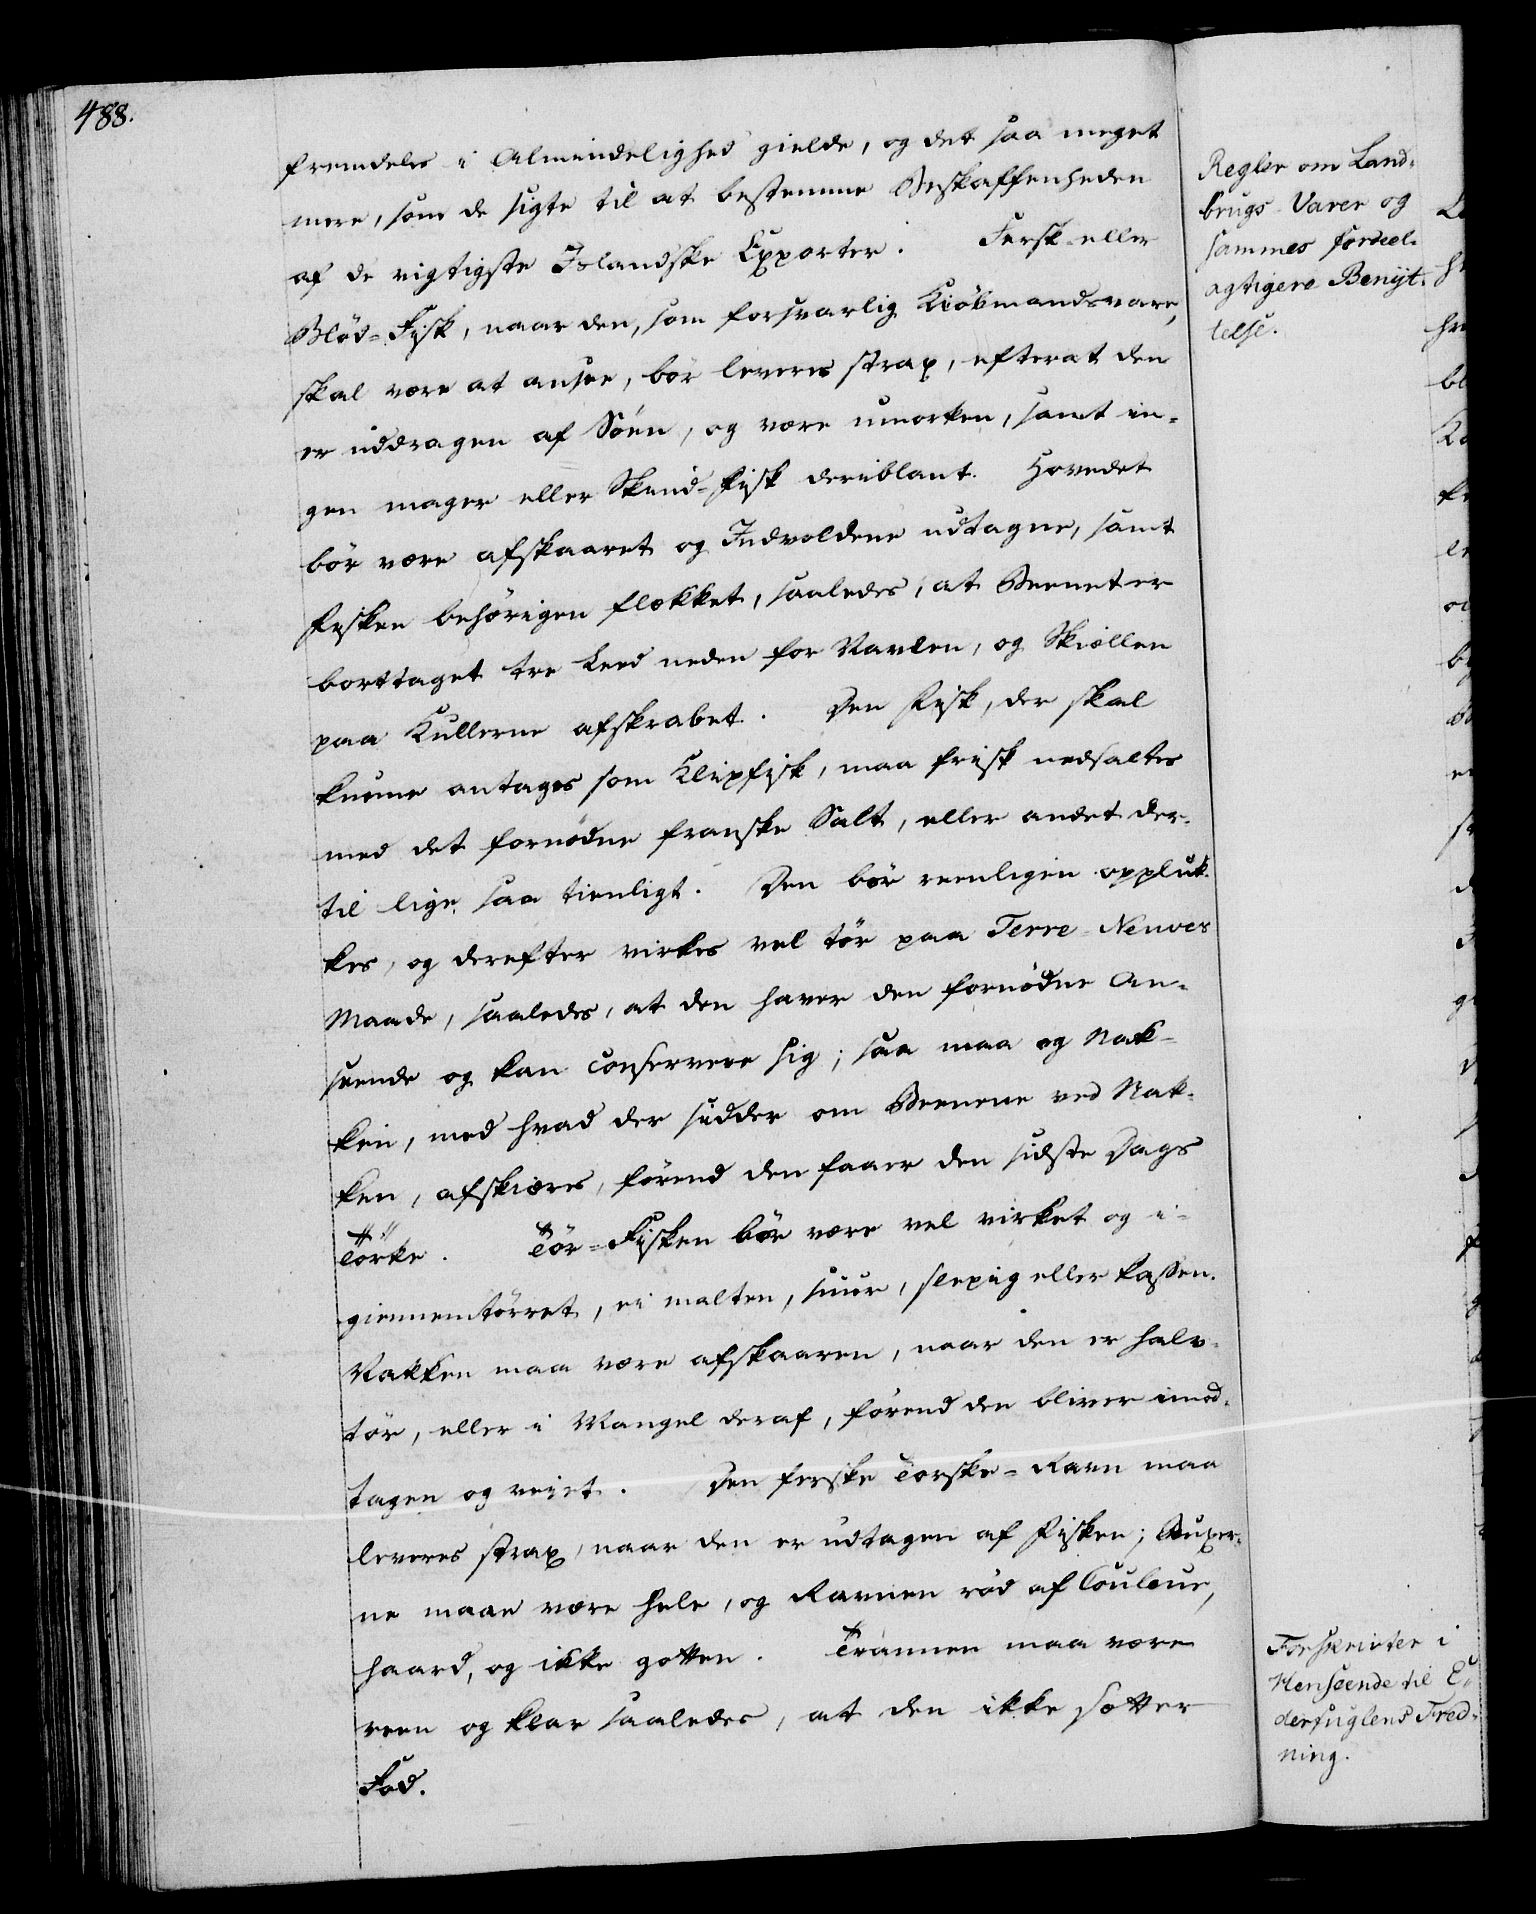 488.
fremdeles i Almindelighed gielde, og det saa meget
mere, som de sigte til at bestemme Beskaffenheden
af de vigtigste Islandske Exporter. Fersk eller
Blød-Fisk, naar den, som forsvarlig Kiøbmandsvare,
skal være at ansee, bør leveres strax, efterat den
er uddragen af Søen, og være umorken, samt in-
gen mager eller Skind-Fisk deriblant. Hovedet
bør være afskaaret og Indvoldene udtagne, samt
Fisken behørigen flækket, saaledes, at Beenet er
borttaget tre Leed neden for Navlen, og Skiællen
paa Kullerne afskrabet. Den Fisk, der skal
kunne antages som Klipfisk, maa frisk nedsaltes
med det fornødne franske Salt, eller andet der-
til lige saa tienligt. Den bør reenligen oppluk-
kes, og derefter virkes vel tør paa Terre-Neuves
Maade, saaledes, at den haver den fornødne An-
seende og kan conservere sig; saa maa og Nak-
ken, med hvad der sidder om Beenene ved Nak-
ken, afskiæres, førend den faaer den sidste Dags
Tørke. Tør-Fisken bør være vel virket og i-
giennemtørret, ei malten, suur, slepig eller kassen.
Nakken maa være afskaaren, naar den er halv-
tør, eller i Mangel deraf, førend den bliver imod-
tagen og veiet. Den ferske Torske-Ravn maa
leveres strax, naar den er udtagen af Fisken;
ne maae være hele, og Ravnen rød af Couleur,
haard, og ikke gotten. Trannen maa være
reen og klar saaledes, at den ikke sætter
Fod.
Regler om Land-
brugs-Varer og
sammes fordeel-
agtigere Benyt-
telse.
Forskrivter i
Henseende til E-
derfuglens Fred-
ning.